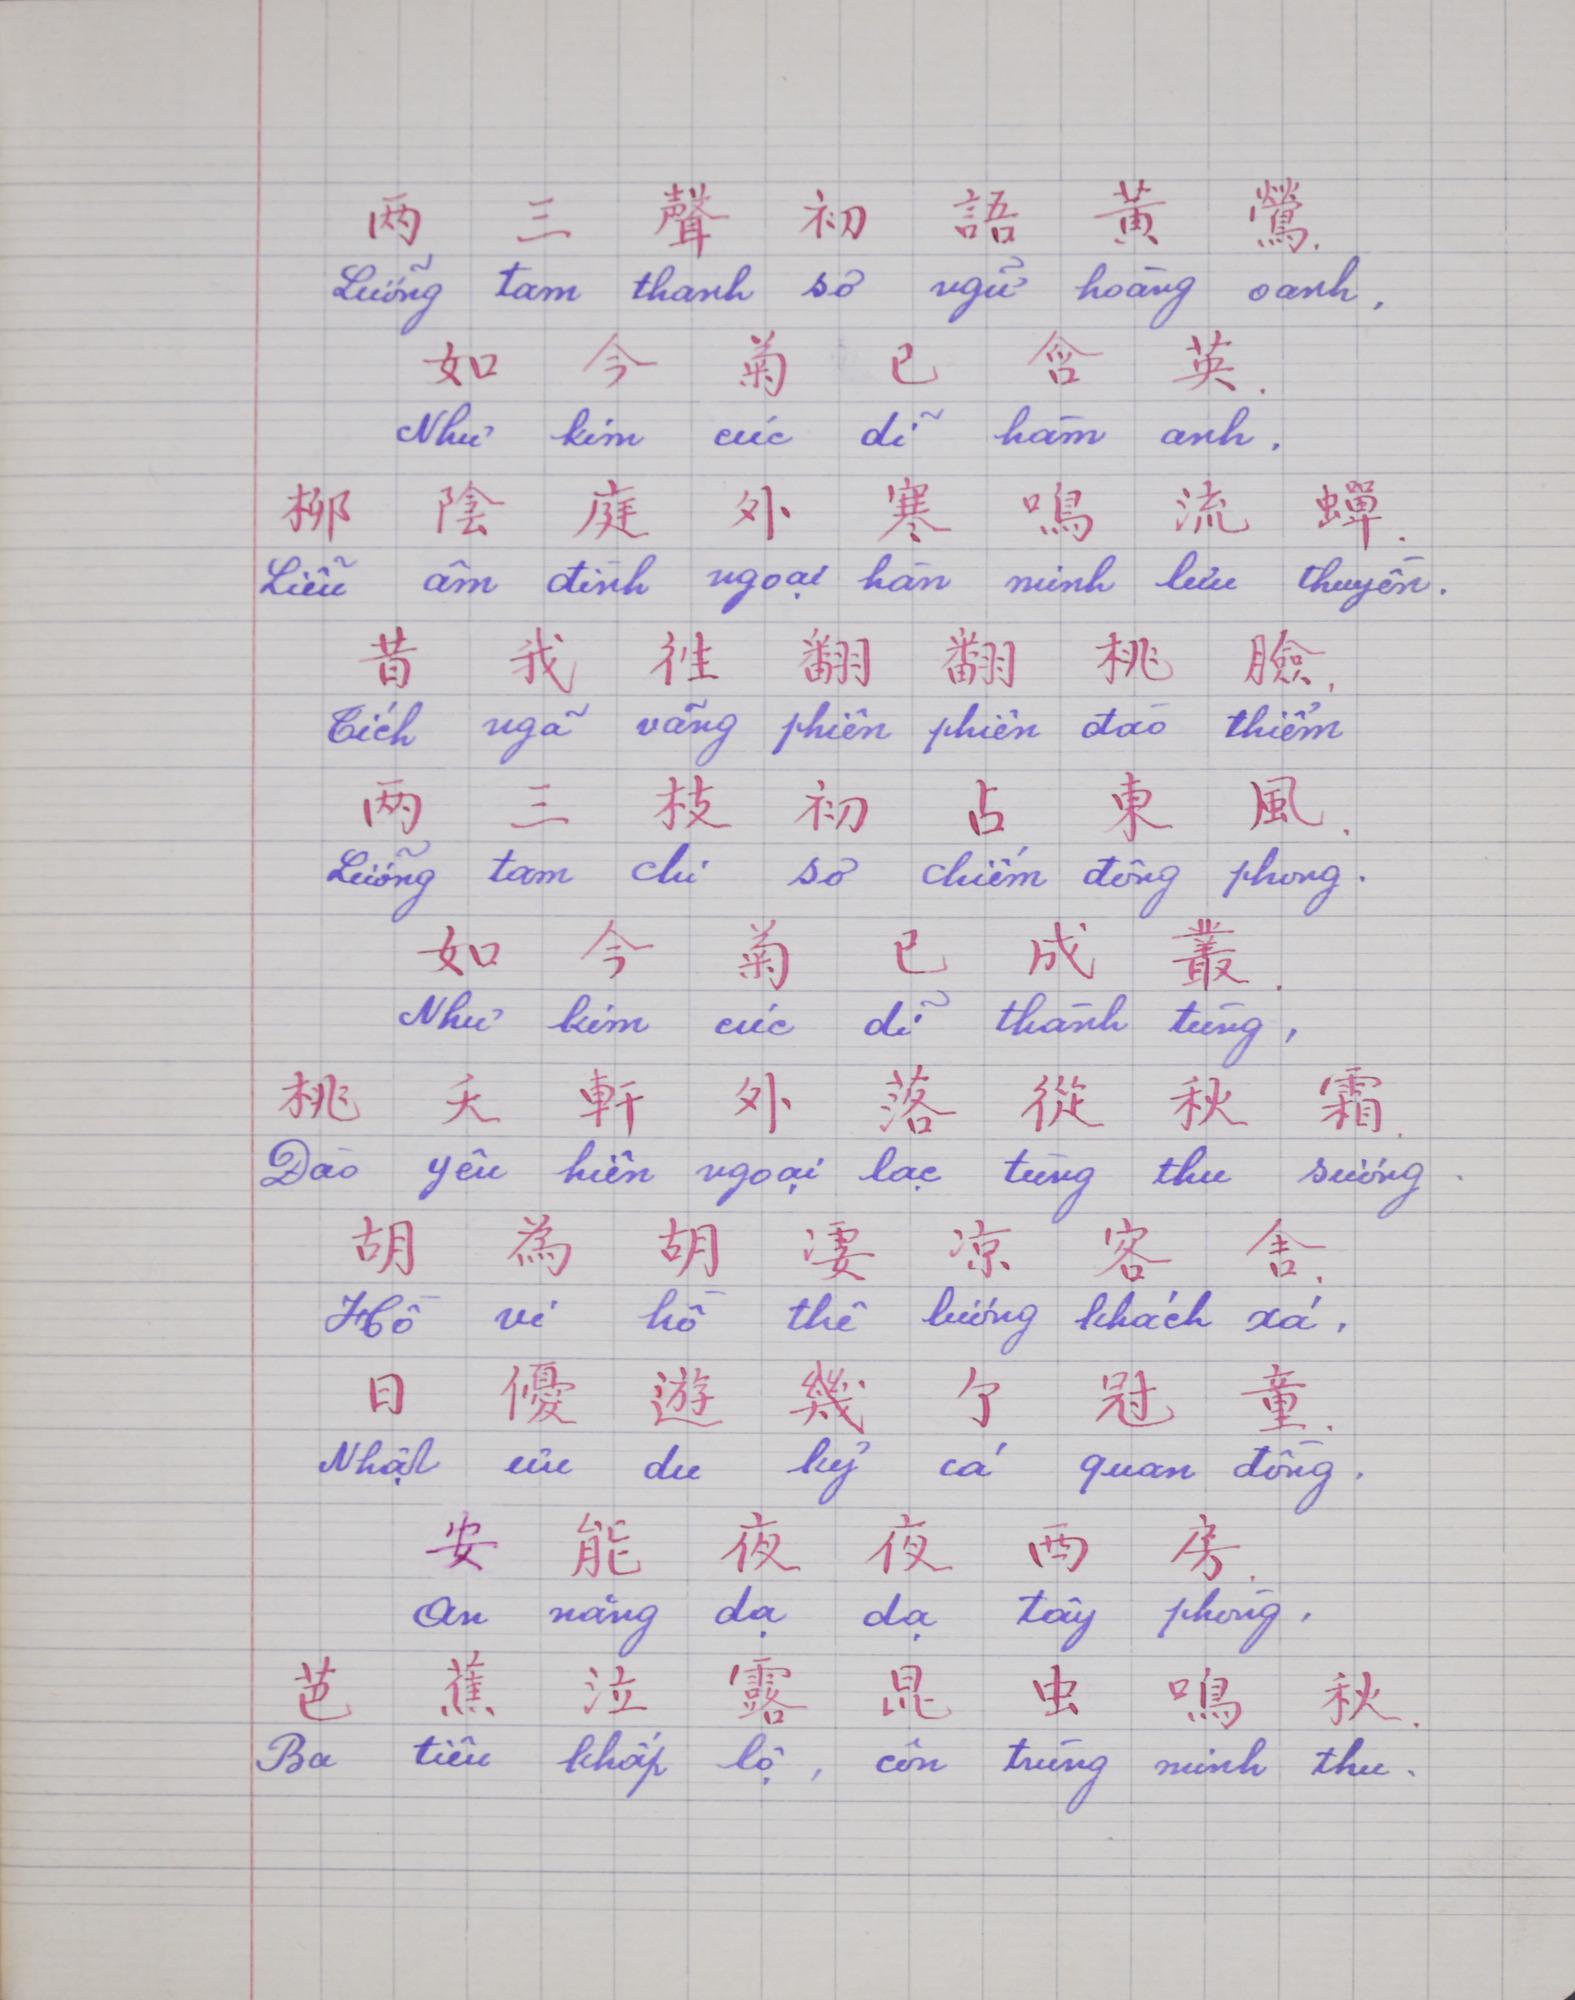 两 三 聲 初 語 黃 鶯.
Lưỡng tam thanh sơ ngữ hoàng oanh,
如 今 菊 已 含 英.
Như kim cúc dĩ hàm anh.
柳 陰 庭 外 寒 鳴 流 蟬.
Liễu âm đình ngoại hàn minh lưu thuyền.
昔 我 徃 翻 翻 桃 臉,
Tích ngã vãng phiên phiên đào thiểm
两 三 枝 初 占 東 風.
Lưỡng tam chi sơ chiếm đông phong.
如 今 菊 已 成 叢.
Như kim cúc dĩ thành tùng,
桃 夭 軒 外 落 從 秋 霜.
Đào yêu hiên ngoại lạc tùng thu sương.
胡 為 胡 凄 凉 客 舍,
Hồ vi hồ thê lương khách xá,
日 優 遊 幾 个 冠 童.
Nhật ưu du kỷ cá quan đồng.
安 能 夜 夜 西 房.
An năng dạ dạ tây phòng,
芭 蕉 泣 露 昆 虫 鳴 秋.
Ba tiêu khấp lộ, côn trùng minh thu.